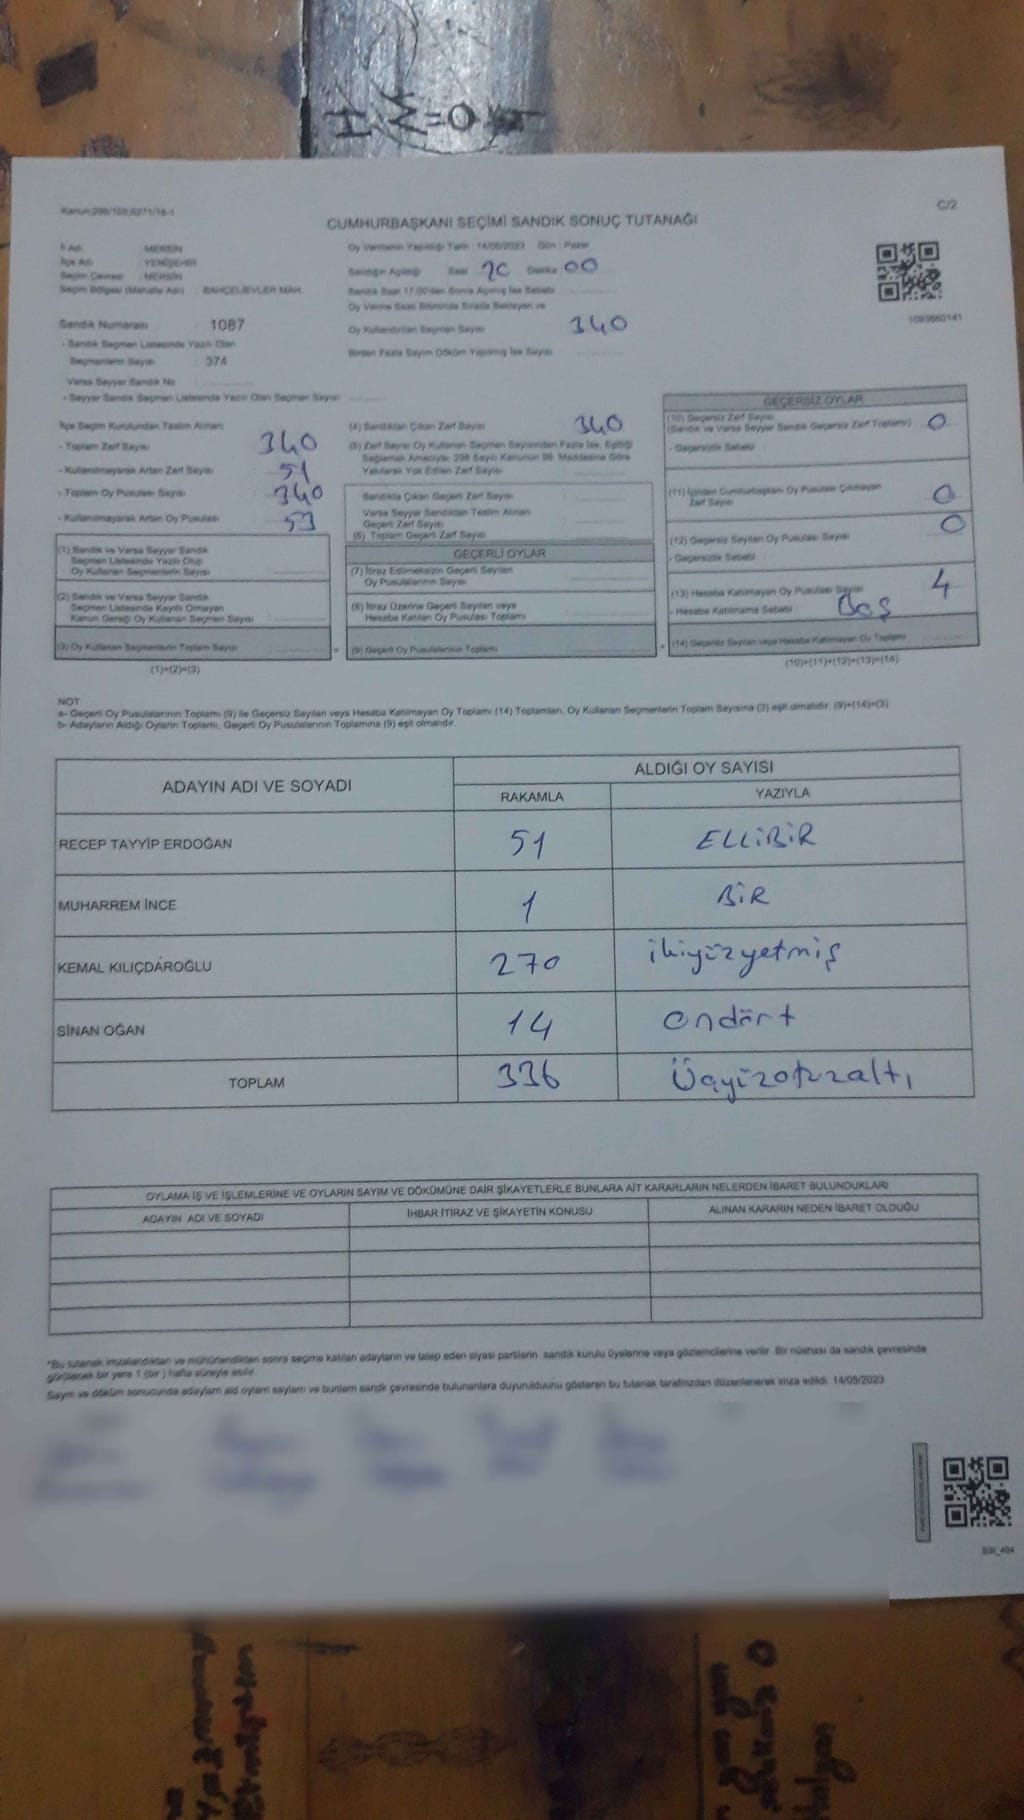 H M=O
Kanun:298/105;6271/16-1
C/2
CUMHURBAŞKANI SEÇİMİ SANDIK SONUÇ TUTANAĞI
İl Adı : MERSİN
İlçe Adı : YENİŞEHİR
Seçim Çevresi : MERSİN
Seçim Bölgesi (Mahalle Adı) : BAHÇELİEVLER MAH.
Sandık Numarası : 1087
- Sandık Seçmen Listesinde Yazılı Olan
Seçmenlerin Sayısı : 374
Varsa Seyyar Sandık No
- Seyyar Sandık Seçmen Listesinde Yazılı Olan Seçmen Sayısı
Oy Vermenin Yapıldığı Tarih : 14/05/2023 Gün : Pazar
Sandığın Açıldığı Saat 20 Dakika 00
Sandık Saat 17:00'den Sonra Açılmış İse Sebebi
Oy Verme Saati Bitiminde Sırada Bekleyen ve
Oy Kullandırılan Seçmen Sayısı 340
Birden Fazla Sayım Döküm Yapılmış İse Sayısı
1093660141
İlçe Seçim Kurulundan Teslim Alınan;
- Toplam Zarf Sayısı 340
- Kullanılmayarak Artan Zarf Sayısı 51
- Toplam Oy Pusulası Sayısı 340
- Kullanılmayarak Artan Oy Pusulası 53
(1) Sandık ve Varsa Seyyar Sandık
Seçmen Listesinde Yazılı Olup
Oy Kullanan Seçmenlerin Sayısı
(2) Sandık ve Varsa Seyyar Sandık
Seçmen Listesinde Kayıtlı Olmayan
Kanun Gereği Oy Kullanan Seçmen Sayısı
(3) Oy Kullanan Seçmenlerin Toplam Sayısı
(1)+(2)=(3)
(4) Sandıktan Çıkan Zarf Sayısı 340
(5) Zarf Sayısı Oy Kullanan Seçmen Sayısından Fazla İse, Eşitliği
Sağlamak Amacıyla; 298 Sayılı Kanunun 98. Maddesine Göre
Yakılarak Yok Edilen Zarf Sayısı
Sandıkta Çıkan Geçerli Zarf Sayısı
Varsa Seyyar Sandıktan Teslim Alınan
Geçerli Zarf Sayısı
(6) Toplam Geçerli Zarf Sayısı
GEÇERLİ OYLAR
(7) İtiraz Edilmeksizin Geçerli Sayılan
Oy Pusulalarının Sayısı
(8) İtiraz Üzerine Geçerli Sayılan veya
Hesaba Katılan Oy Pusulası Toplamı
(9) Geçerli Oy Pusulalarının Toplamı
GEÇERSİZ OYLAR
(10) Geçersiz Zarf Sayısı
(Sandık ve Varsa Seyyar Sandık Geçersiz Zarf Toplamı) 0
- Geçersizlik Sebebi
(11) İçinden Cumhurbaşkanı Oy Pusulası Çıkmayan
Zarf Sayısı 0
(12) Geçersiz Sayılan Oy Pusulası Sayısı 0
- Geçersizlik Sebebi
(13) Hesaba Katılmayan Oy Pusulası Sayısı 4
- Hesaba Katılmama Sebebi Boş
(14) Geçersiz Sayılan veya Hesaba Katılmayan Oy Toplamı
(10)+(11)+(12)+(13)=(14)
NOT:
a- Geçerli Oy Pusulalarının Toplamı (9) ile Geçersiz Sayılan veya Hesaba Katılmayan Oy Toplamı (14) Toplamları, Oy Kullanan Seçmenlerin Toplam Sayısına (3) eşit olmalıdır. (9)+(14)=(3)
b- Adayların Aldığı Oyların Toplamı, Geçerli Oy Pusulalarının Toplamına (9) eşit olmalıdır.
ADAYIN ADI VE SOYADI
ALDIĞI OY SAYISI
RAKAMLA YAZIYLA
RECEP TAYYİP ERDOĞAN 51 ELLİBİR
MUHARREM İNCE 1 BİR
KEMAL KILIÇDAROĞLU 270 ikiyüzyetmiş
SİNAN OĞAN 14 ondört
TOPLAM 336 Üçyüzotuzaltı
OYLAMA İŞ VE İŞLEMLERİNE VE OYLARIN SAYIM VE DÖKÜMÜNE DAİR ŞİKAYETLERLE BUNLARA AİT KARARLARIN NELERDEN İBARET BULUNDUKLARI
ADAYIN ADI VE SOYADI İHBAR İTİRAZ VE ŞİKAYETİN KONUSU ALINAN KARARIN NEDEN İBARET OLDUĞU
*Bu tutanak imzalandıktan ve mühürlendikten sonra seçime katılan adayların ve talep eden siyasi partilerin sandık kurulu üyelerine veya gözlemcilerine verilir. Bir nüshası da sandık çevresinde
görülecek bir yere 1 (bir) hafta süreyle asılır.
Sayım ve döküm sonucunda adayların aldı oyların sayıları ve bunların sandık çevresinde bulunanlara duyurulduunu gösteren bu tutanak tarafımızdan düzenlenerek imza edildi. 14/05/2023
SSI_404